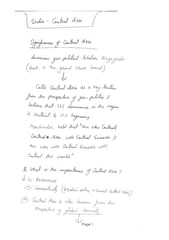 India - Central Asia
Significance of Central Asia
American geo political Scholar
(book : in the grand chess board)
Calls Central Asia as a key
from the perspective of geo politics &
believes that US dominance in the region
is critical to US hegemony
Mackinder held that "One who controls
Central Asia will control Eurasia &
one who will control Eurasia will
control the world"
Q. What is the importance of Central Asia?
① Resources
② Connectivity
③ Central Asia is also known from the
perspective of global security
Page 1